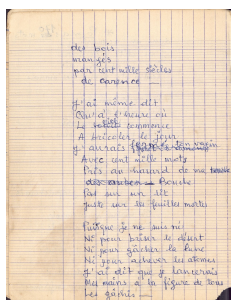 des bois
mangés
par cent mille siècles
de carence
J'ai même dit
Qu'à l'heure où
Le commence
A bricoler le jour
J'aurais
Avec cent mille mots
Pris au hasard de ma
Bouche
Pas sur un lit
Juste sur la feuilles mortes
Puisque je ne suis né
Ni pour briser le désert
Ni pour gâcher la lune
Ni pour achever les atomes
J'ai dit que je lancerais
Mes mains à la figure de tous
Les gâchis